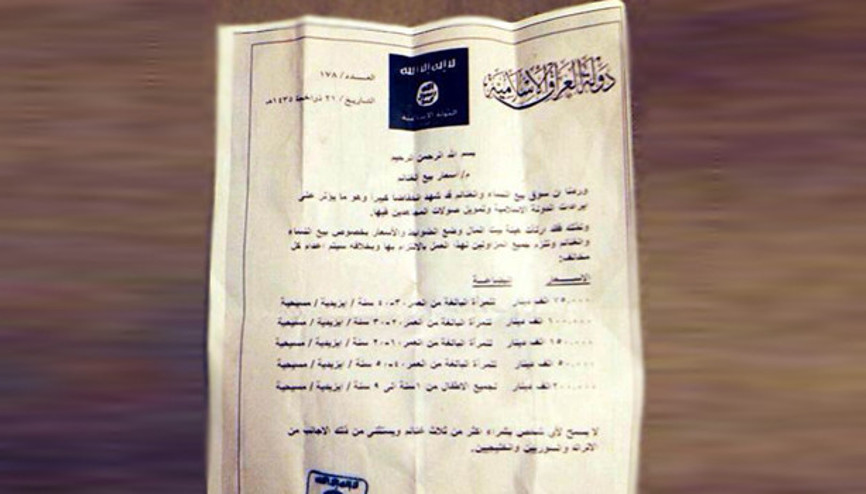 دولة العراق الإسلامية
العـــدد/ ١٧٨
التاريخ/ ٢١ ذو الحجة ١٤٣٥هـ
لا إله إلا الله
الدولة الإسلامية
بسم الله الرحمن الرحيم
م/ اسعار بيع الغنائم
وردنا ان سوق بيع النساء والغنائم قد شهد انخفاضا كبيرا وهو ما يؤثر على
ايرادات الدولة الاسلامية وتمويل صولات المجاهدين فيها.
ولذلك فقد ارتأت هيئة بيت المال وضع الضوابط والأسعار بخصوص بيع النساء
والغنائم وتلزم جميع المزاولين لهذا العمل بالإلتزام بها وبخلافه سيتم اعدام كل
مخالف:
الاســـعار البضاعـــة
٧٥،٠٠٠ الف دينار للمرأة البالغة من العمر ٣٠-٤٠ سنة / ايزيدية / مسيحية
١٠٠،٠٠٠ الف دينار للمرأة البالغة من العمر ٢٠-٣٠ سنة / ايزيدية / مسيحية
١٥٠،٠٠٠ الف دينار للمرأة البالغة من العمر ١٠-٢٠ سنة / ايزيدية / مسيحية
٥٠،٠٠٠ الف دينار للمرأة البالغة من العمر ٤٠-٥٠ سنة / ايزيدية / مسيحية
٢٠٠،٠٠٠ الف دينار لجميع الاطفال من ١ سنة الى ٩ سنة / ايزيدية / مسيحية
لا يسمح لأي شخص بشراء اكثر من ثلاث غنائم ويستثنى من ذلك الاجانب من
الاتراك والسوريين والخليجيين.